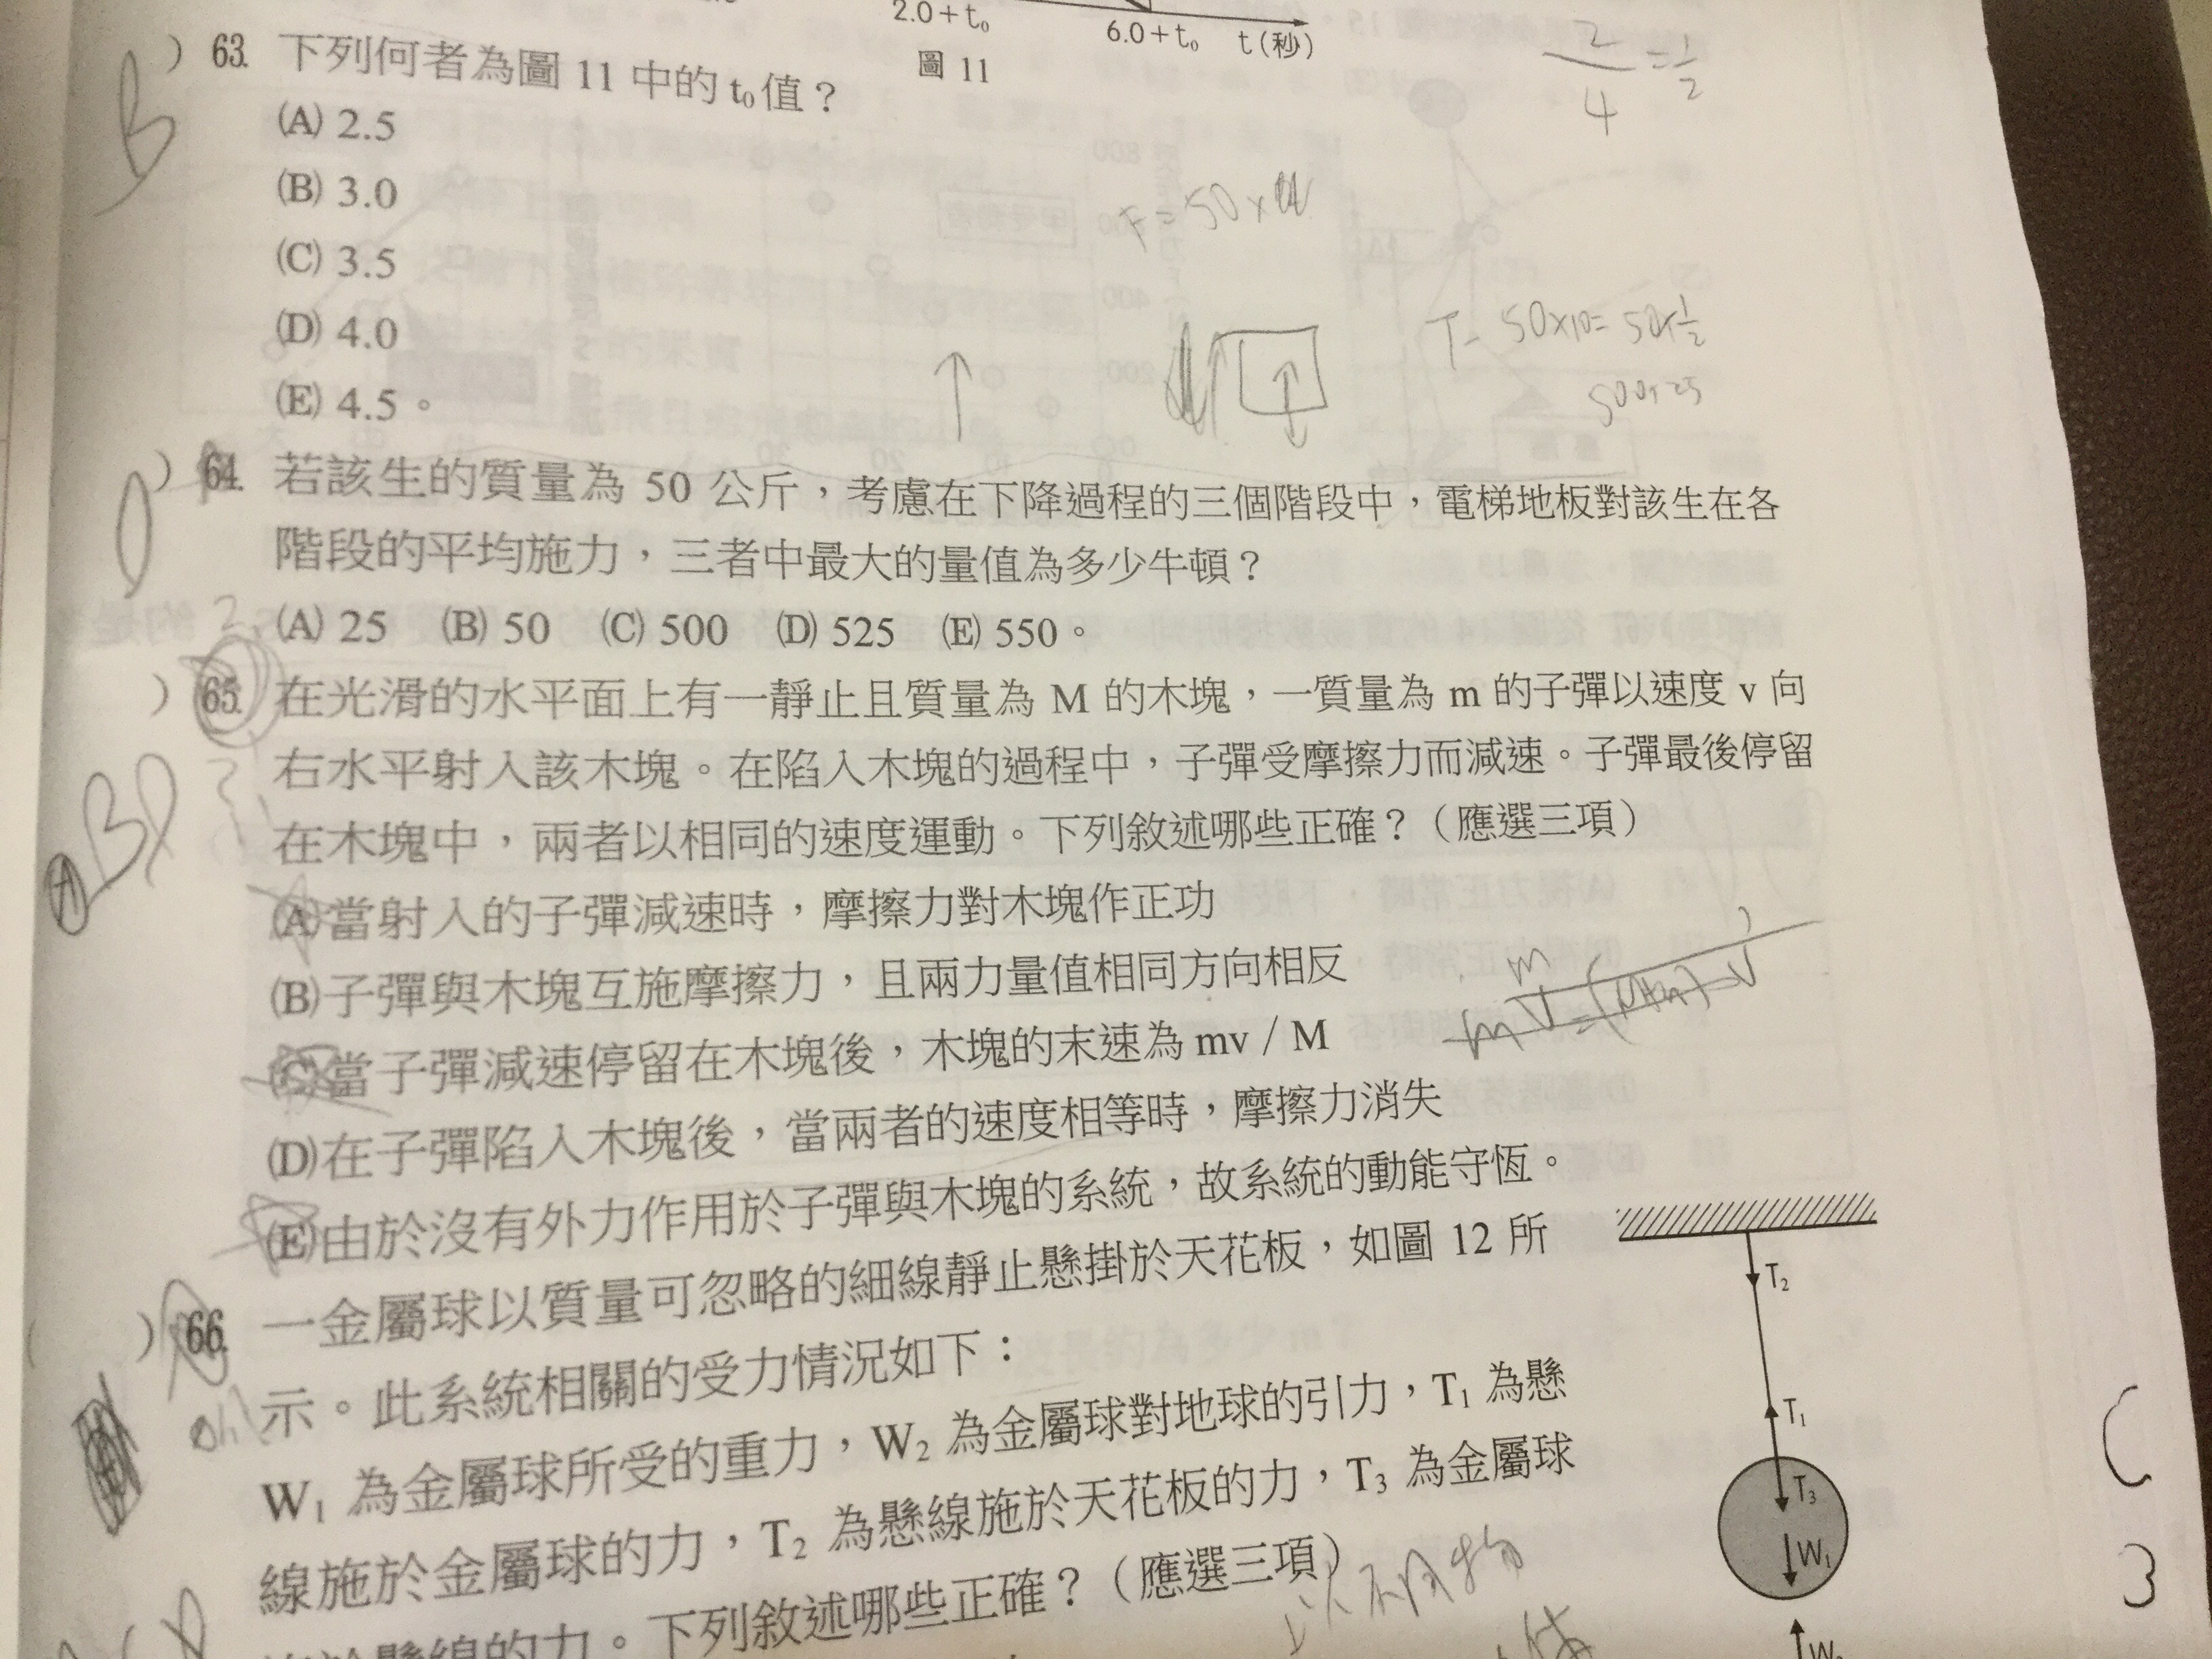 2.0+t₀
6.0+t₀ t(秒)
圖 11
2/4=1/2
B
) 63. 下列何者為圖 11 中的 t₀值？
(A) 2.5
(B) 3.0
(C) 3.5
(D) 4.0
(E) 4.5。
F=50×
T-50×10=50×1/2
) 64. 若該生的質量為 50 公斤，考慮在下降過程的三個階段中，電梯地板對該生在各
階段的平均施力，三者中最大的量值為多少牛頓？
(A) 25 (B) 50 (C) 500 (D) 525 (E) 550。
) 65. 在光滑的水平面上有一靜止且質量為 M 的木塊，一質量為 m 的子彈以速度 v 向
右水平射入該木塊。在陷入木塊的過程中，子彈受摩擦力而減速。子彈最後停留
在木塊中，兩者以相同的速度運動。下列敘述哪些正確？（應選三項）
(A)當射入的子彈減速時，摩擦力對木塊作正功
(B)子彈與木塊互施摩擦力，且兩力量值相同方向相反
(C)當子彈減速停留在木塊後，木塊的末速為 mv / M
(D)在子彈陷入木塊後，當兩者的速度相等時，摩擦力消失
(E)由於沒有外力作用於子彈與木塊的系統，故系統的動能守恆。
) 66. 一金屬球以質量可忽略的細線靜止懸掛於天花板，如圖 12 所
示。此系統相關的受力情況如下：
W₁ 為金屬球所受的重力，W₂ 為金屬球對地球的引力，T₁ 為懸
線施於金屬球的力，T₂ 為懸線施於天花板的力，T₃ 為金屬球
施於懸線的力。下列敘述哪些正確？（應選三項）
T₂
T₁
T₃
W₁
C
3